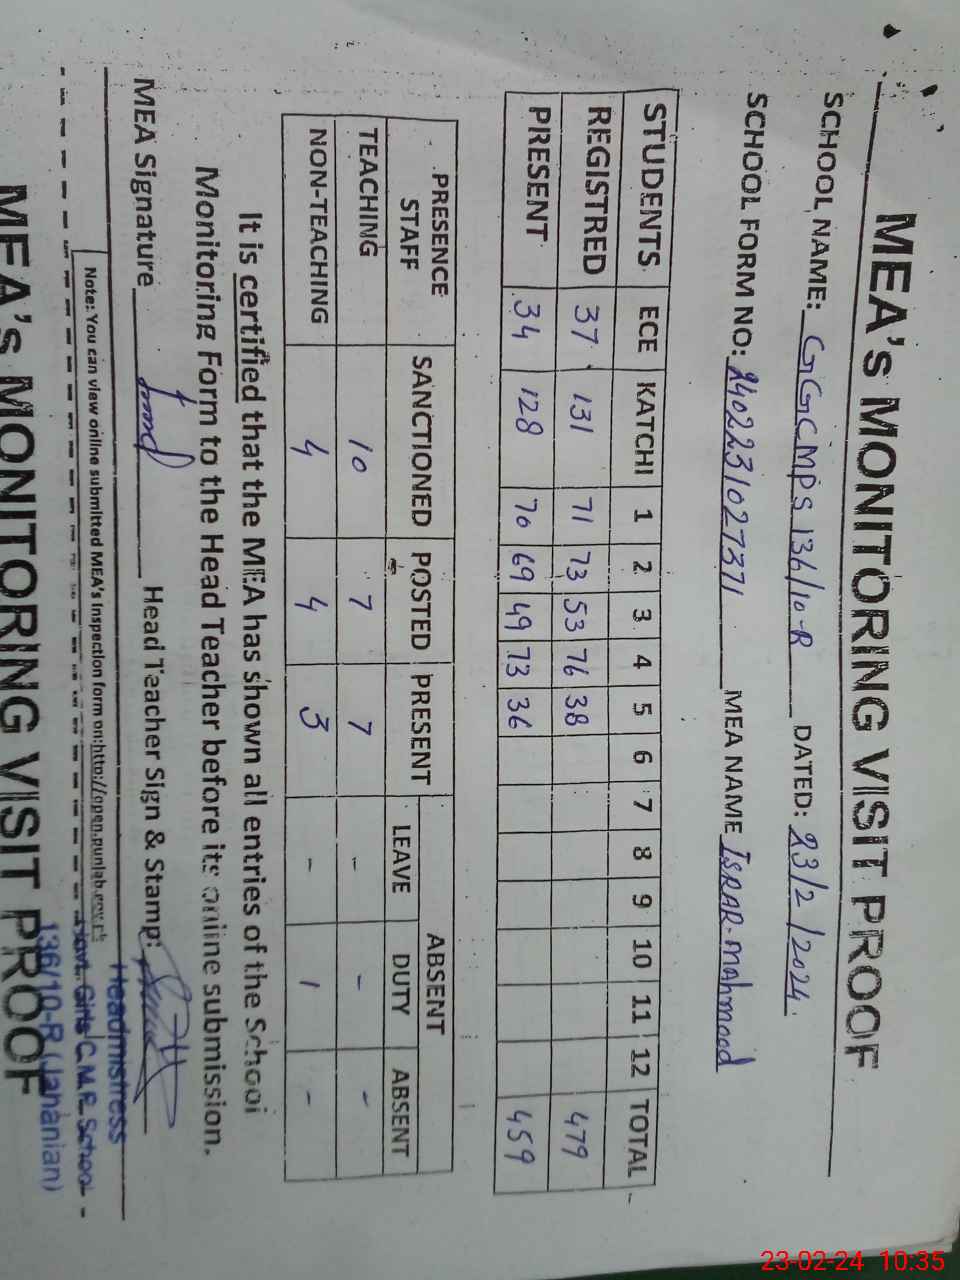 MEA's MONITORING VISIT PROOF
SCHOOL NAME: GGCMPS 136/10-R DATED: 23/2/2024.
SCHOOL FORM NO: 2402231027371 MEA NAME ISRAR-mahmood
STUDENTS ECE KATCHI 1 2 3 4 5 6 7 8 9 10 11 12 TOTAL
REGISTRED 37 131 71 73 53 76 38 479
PRESENT 34 128 70 69 49 73 36 459
PRESENCE STAFF SANCTIONED POSTED PRESENT ABSENT
LEAVE DUTY ABSENT
TEACHING 10 7 7 - - -
NON-TEACHING 4 4 3 - 1 -
It is certified that the MEA has shown all entries of the School
Monitoring Form to the Head Teacher before its online submission.
MEA Signature Head Teacher Sign & Stamp:
Headmistress
Govt. Girls C.M.P. School
136/10-R (Jahanian)
Note: You can view online submitted MEA's Inspection form on:http://open.punjab.gov.pk
MEA's MONITORING VISIT PROOF
23-02-24 10:35